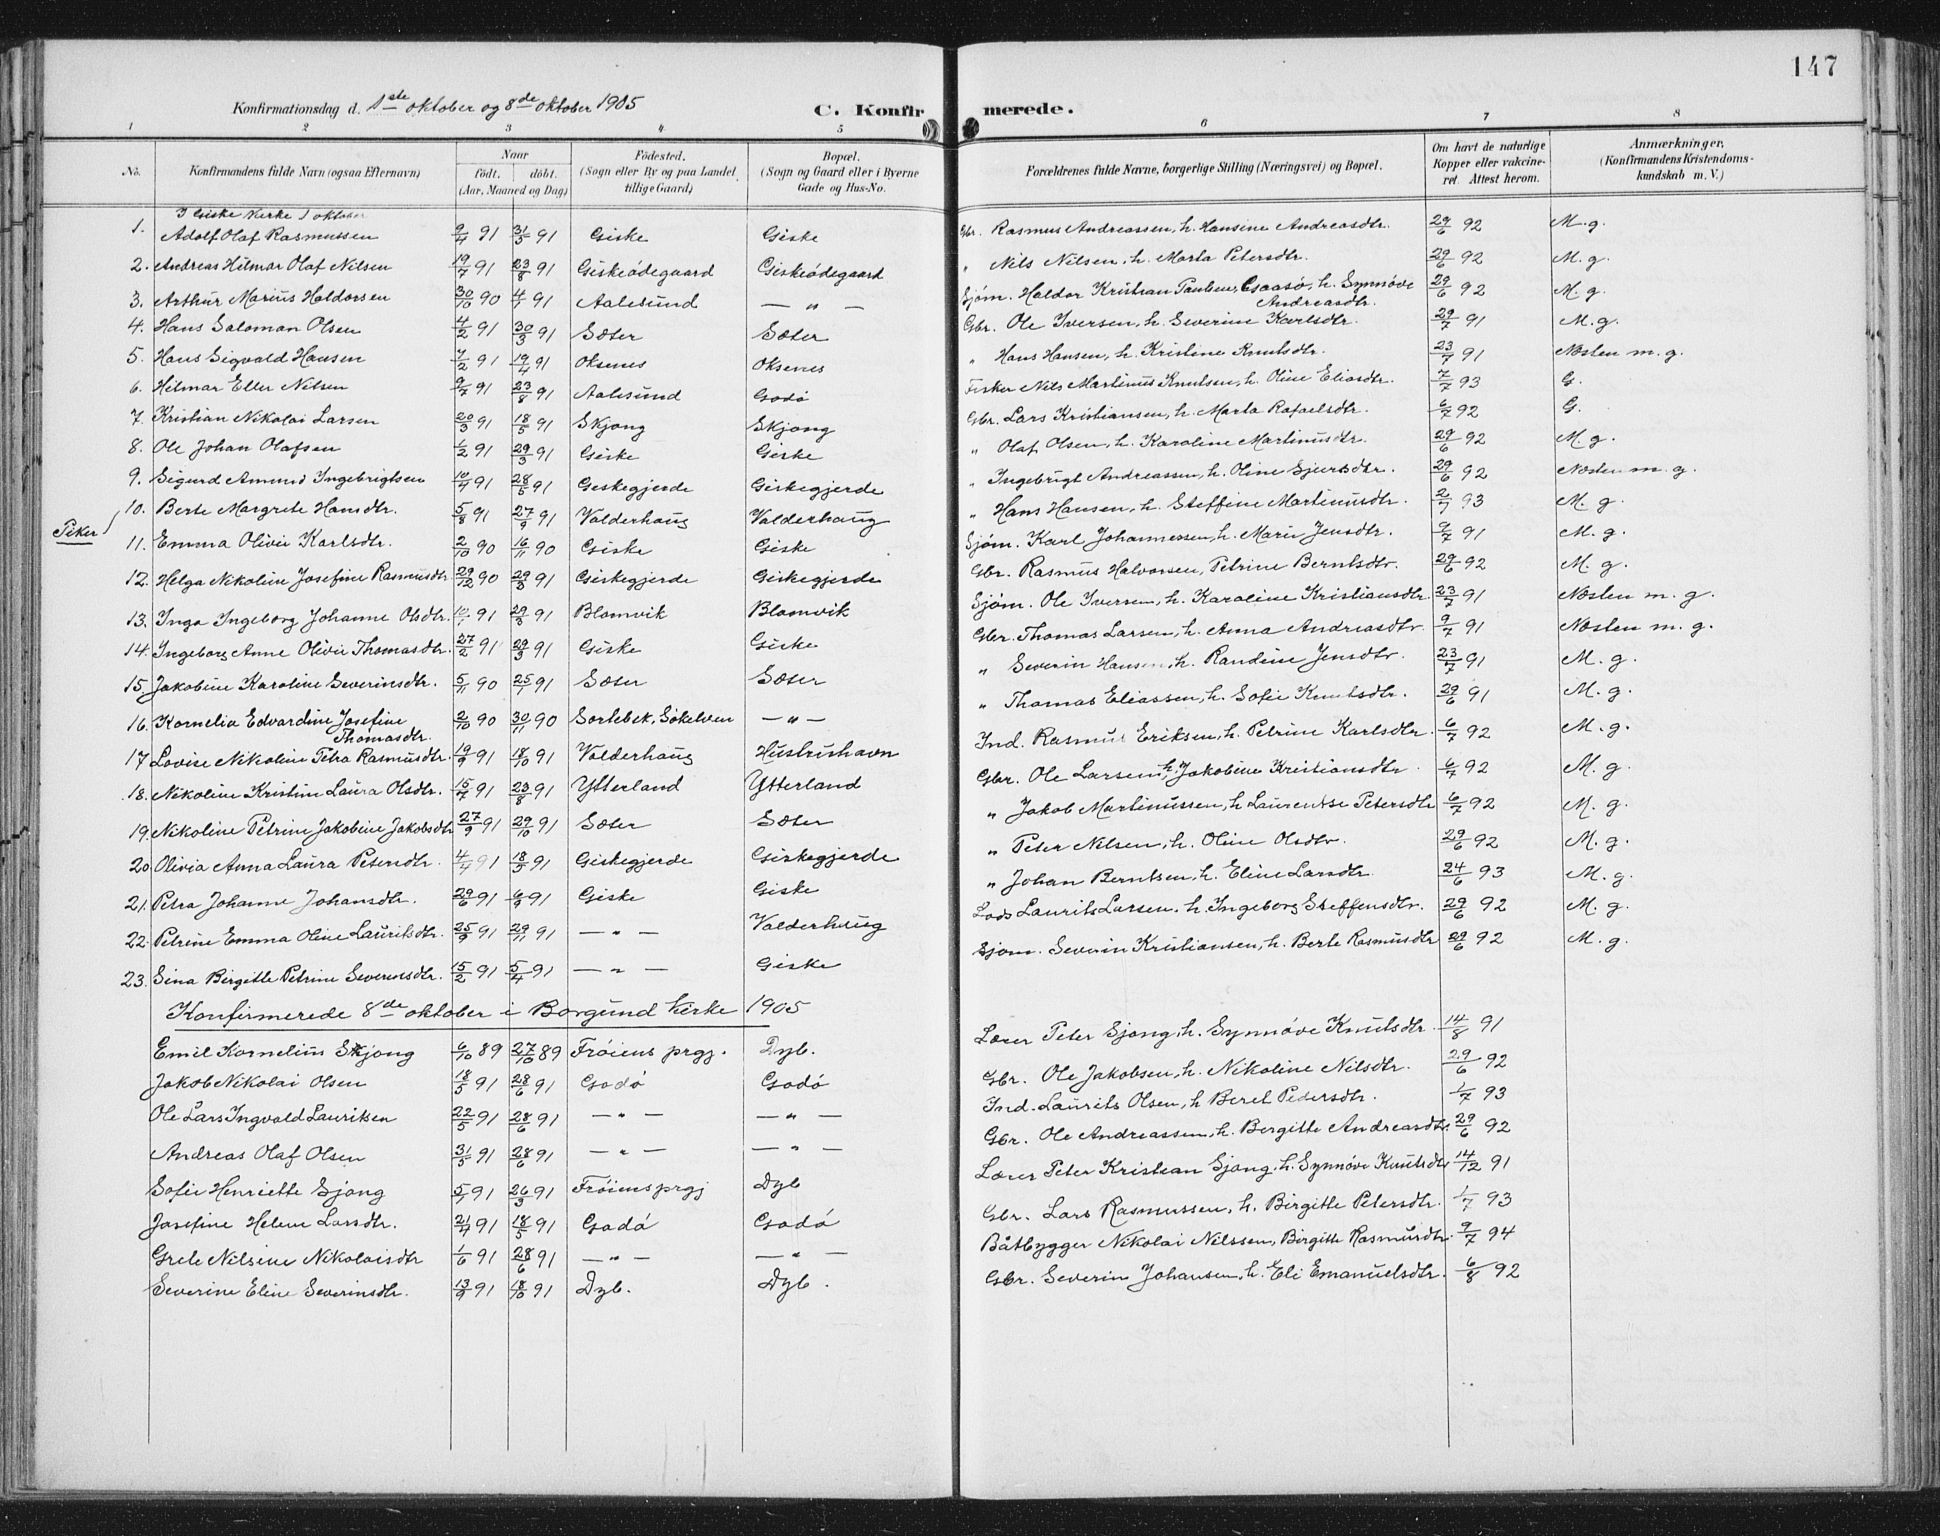 147
Konfirmationsdag d. 1ste oktober og 8de oktober 1905 C. Konfirmerede.
1 2 3 4 5 6 7 8
No. Konfirmandens fulde Navn (ogsaa Efternavn) Naar født. døbt. (Aar, Maaned og Dag) Fødested. (Sogn eller By og paa Landet tillige Gaard) Bopæl. (Sogn og Gaard eller i Byerne Gade og Hus-No. Forældrenes fulde Navne, borgerlige Stilling (Næringsvei) og Bopæl. Om havt de naturlige Kopper eller vakcineret. Attest herom. Anmærkninger, (Konfirmandens Kristendomskundskab m. V.)
I Giske Kirke 1 oktober
1. Adolf Olaf Rasmussen 9/4 91 31/5 91 Giske Giske Gbr. Rasmus Andreassen, h. Hansine Andreasdtr. 29/6 92 M. g.
2. Andreas Hilmar Olaf Nilsen 19/7 91 23/8 91 Giskeødegaard Giskeødegaard " Nils Nilsen, h. Marta Petersdtr. 29/6 92 M. g.
3. Arthur Marius Haldorsen 30/10 90 4/1 91 Aalesund — " — Sjøm. Haldor Kristian h. Synnøve Andreasdtr. 29/6 92 M. g.
4. Hans Salomon Olsen 4/2 91 30/3 91 Sæter Sæter Gbr. Ole Iversen, h. Severine Karlsdtr. 29/7 91 M. g.
5. Hans Sigvald Hansen 7/2 91 19/4 91 Oksenes Oksenes " Hans Hansen, h. Kristine Knutsdtr. 23/7 91 Næsten m. g.
6. Hilmar Eller Nilsen 9/7 91 23/8 91 Aalesund Godø Fisker Nils Martinus Knutsen, h. Oline Eliasdtr. 7/7 93 G.
7. Kristian Nikolai Larsen 20/3 91 18/5 91 Skjong Skjong Gbr. Lars Kristiansen, h. Marta Rafaelsdtr. 6/7 92 G.
8. Ole Johan Olafsen 1/2 91 29/3 91 Giske Giske " Olaf Olsen, h. Karoline Martinusdtr. 29/6 92 M. g.
9. Sigurd Amund Ingebrigtsen 10/4 91 28/5 91 Giskegjerde Giskegjerde " Ingebrigt Andreassen, h. Oline Sjursdtr. 29/6 92 Næsten m. g.
Piker
10. Berte Margrete Hansdtr. 5/8 91 27/9 91 Valderhaug Valderhaug " Hans Hansen, h. Steffine Martinusdtr. 2/7 93 M. g.
11. Emma Olivie Karlsdtr. 2/10 90 16/11 90 Giske Giske Sjøm. Karl Johannessen, h. Marie Jensdtr. 9/7 91 M. g.
12. Helga Nikoline Josefine Rasmusdtr. 29/12 90 29/3 91 Giskegjerde Giskegjerde Gbr. Rasmus Halvorsen, Petrine Berntsdtr. 29/6 92 M. g.
13. Inga Ingeborg Johanne Olsdtr. 10/1 91 29/3 91 Blomvik Blomvik Sjøm. Ole Iversen, h. Karoline Kristiansdtr. 23/7 91 Næsten m. g.
14. Ingeborg Anne Olivie Thomasdtr. 27/2 91 29/3 91 Giske Giske Gbr. Thomas Larsen, h. Anna Andreasdtr 9/7 91 Næsten m. g.
15. Jakobine Karoline Severinsdtr. 5/11 90 25/1 91 Sæter Sæter " Severin Hansen, h. Randine Jensdtr. 23/7 91 M. g.
16. Kornelia Edvardine Josefine Thomasdtr. 2/10 90 30/11 90 Sortebek, Søkelven — " — " Thomas Eliassen, h. Sofie Knutsdtr. 29/6 91 M. g.
17 Lovise Nikoline Petra Rasmusdtr. 19/9 91 18/10 91 Valderhaug Hustrushavn Ind. Rasmus Eriksen, h. Petrine Karlsdtr. 6/7 92 M. g.
18. Nikoline Kristine Laura Olsdtr. 15/7 91 23/8 91 Ytterland Ytterland Gbr. Ole Larsen, h. Jakobine Kristiansdtr 6/7 92 M. g.
19. Nikoline Petrine Jakobine Jakobsdtr 27/9 91 29/10 91 Sæter Sæter " Jakob Martinussen, h Laurentse Petersdtr 6/7 92 M. g.
20 Olivia Anna Laura Petersdtr. 4/4 91 18/5 91 Giskegjerde Giskegjerde " Peter Nilsen, h. Oline Olsdtr. 29/6 92 M. g.
21. Petra Johanne Johansdtr. 29/6 91 6/9 91 Giske Giske " Johan Berntsen, h. Eline Larsdtr. 24/6 93 M. g.
22. Petrine Emma Oline Lauritsdtr. 25/9 91 29/11 91 — " — Valderhaug Lods Laurits Larsen, h. Ingeborg Steffensdtr. 29/6 92 M. g.
23. Sina Birgitte Petrine Severinsdtr. 15/2 91 5/4 91 — " — Giske Sjøm. Severin Kristiansen, h. Berte Rasmusdtr 29/6 92 M. g.
Konfirmerede 8de oktober i Borgund kirke 1905
Emil Kornelius Skjong 6/10 89 27/10 89 Frøiens prgj. Dyb. Lærer Peter Sjong, h. Synnøve Knutsdtr 14/8 91
Jakob Nikolai Olsen 18/5 91 28/6 91 Godø Godø Gbr. Ole Jakobsen, h. Nikoline Nilsdtr. 29/6 92
Ole Lars Ingvald Lauritsen 22/5 91 28/6 91 — " — — " — Ind. Laurits Olsen, h Beret Pedersdtr. 1/7 93
Andreas Olaf Olsen 31/5 91 28/6 91 — " — — " — Gbr. Ole Andreassen, h. Bergitte Andreasdtr. 29/6 92
Sofie Henriette Sjong 5/1 91 26/3 91 Frøiens prgj Dyb Lærer Peter Kristian Sjong, h. Synnøve Knutsdtr 14/12 91
Josefine Helene Larsdtr. 21/4 91 18/5 91 Godø Godø Gbr. Lars Rasmussen, h. Birgitte Petersdtr. 1/7 93
Grete Nilsine Nikolaisdtr 1/6 91 28/6 91 — " — — " — Båtbygger Nikolai Nilssen, Birgitte Rasmusdtr. 9/7 94
Severine Eline Severinsdtr. 13/9 91 18/10 91 Dyb. Dyb. Gbr. Severin Johansen, h. Eli Emanuelsdtr. 6/8 92